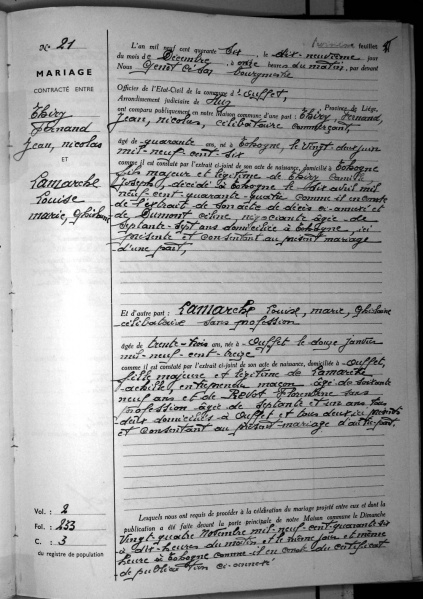 N° 21
MARIAGE
CONTRACTÉ ENTRE
Thiry
Fernand
Jean, nicolas
ET
Lamarche
Louise
marie, Ghislaine
feuillet
L'an mil neuf cent quarante six, le dix-neuvième jour
du mois de Décembre, à onze heures du matin, par devant
Nous bourgmestre
Officier de l'Etat-Civil de la commune d'Ouffet,
Arrondissement judiciaire de Huy Province de Liège,
ont comparu publiquement en notre Maison commune; d'une part: Thiry, Fernand,
Jean, nicolas, célibataire commerçant,
âgé de quarante ans, né à Bobogne, le vingt deux juin
mil-neuf-cent-six
comme il est constaté par l'extrait ci-joint de son acte de naissance, domicilié à Bobogne
fils majeur et légitime de Thiry Camille
Joseph, décédé à Bobogne le dix avril mil
neuf-cent-quarante-quatre comme il en conste
de l'extrait de son acte de décès ci-annexé et
de Dumont Céline, négociante âgée de
septante-sept ans domiciliée à Bobogne, ici
présente et consentant au présent mariage
d'une part,
Et d'autre part: Lamarche Louise, marie, Ghislaine
célibataire sans profession
âgée de trente-trois ans, née à Ouffet le douze janvier
mil-neuf-cent-treize
comme il est constaté par l'extrait ci-joint de son acte de naissance, domiciliée à Ouffet,
fille majeure et légitime de Lamarche
entrepreneur maçon âgé de soixante
neuf ans et de Florentine sans
profession âgée de septante et un ans tous
deux domiciliés à Ouffet et tous deux ici présents
et consentant au présent mariage d'autre part,
Vol.: 2
Fol.: 253
C.: 3
du registre de population
Lesquels nous ont requis de procéder à la célébration du mariage projeté entre eux et dont la
publication a été faite devant la porte principale de notre Maison commune le Dimanche
Vingt-quatre Novembre mil-neuf-cent-quarante six
à dix-heures du matin et le même jour et même
heure à Bobogne comme il en conste du certificat
de publication ci-annexé